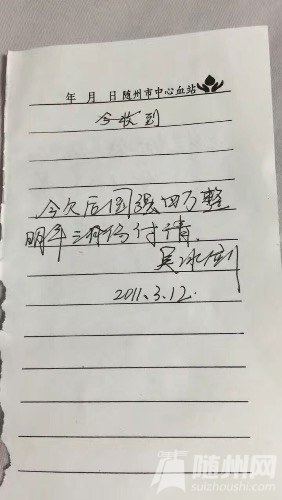 年 月 日 随州市中心血站
今收到
今欠后国强四万整
明年三月份付清.
吴
2011.3.12.
随州网
suizhoushi.com